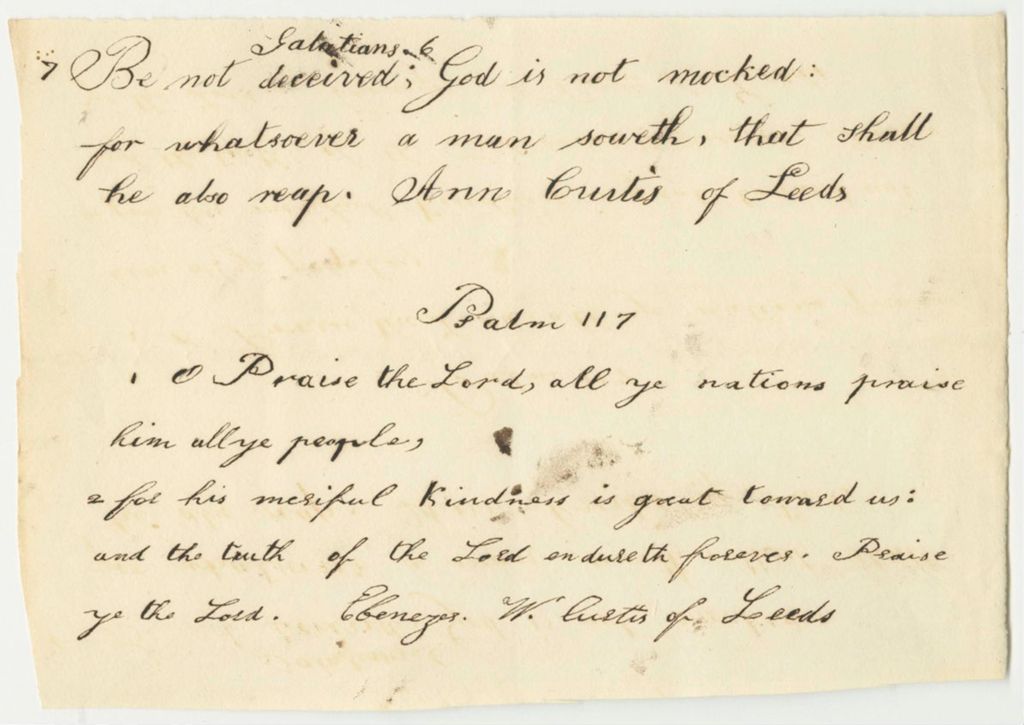 Galatians. 6
7 Be not deceived; God is not mocked:
for whatsoever a man soweth, that shall
he also reap. Ann Curtis of Leeds
Psalm 117
1 O Praise the Lord, all ye nations praise
him all ye people,
2 for his merciful Kindness is great toward us:
and the truth of the Lord endureth forever. Praise
ye the Lord. Ebenezer. W. Curtis of Leeds